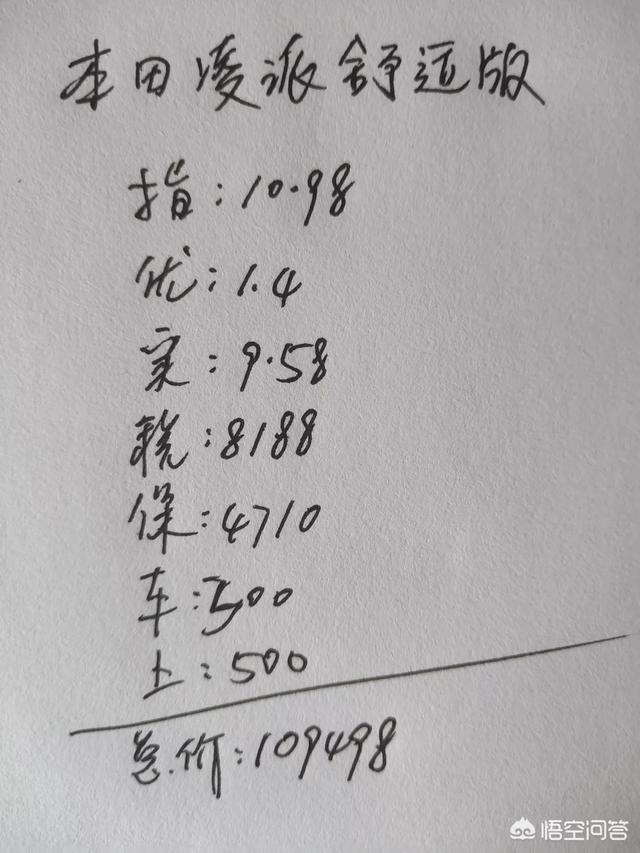 本田凌派舒适版
指:10.98
优:1.4
实:9.58
税:8188
保:4710
车:500
上:500
总价:109498
悟空问答